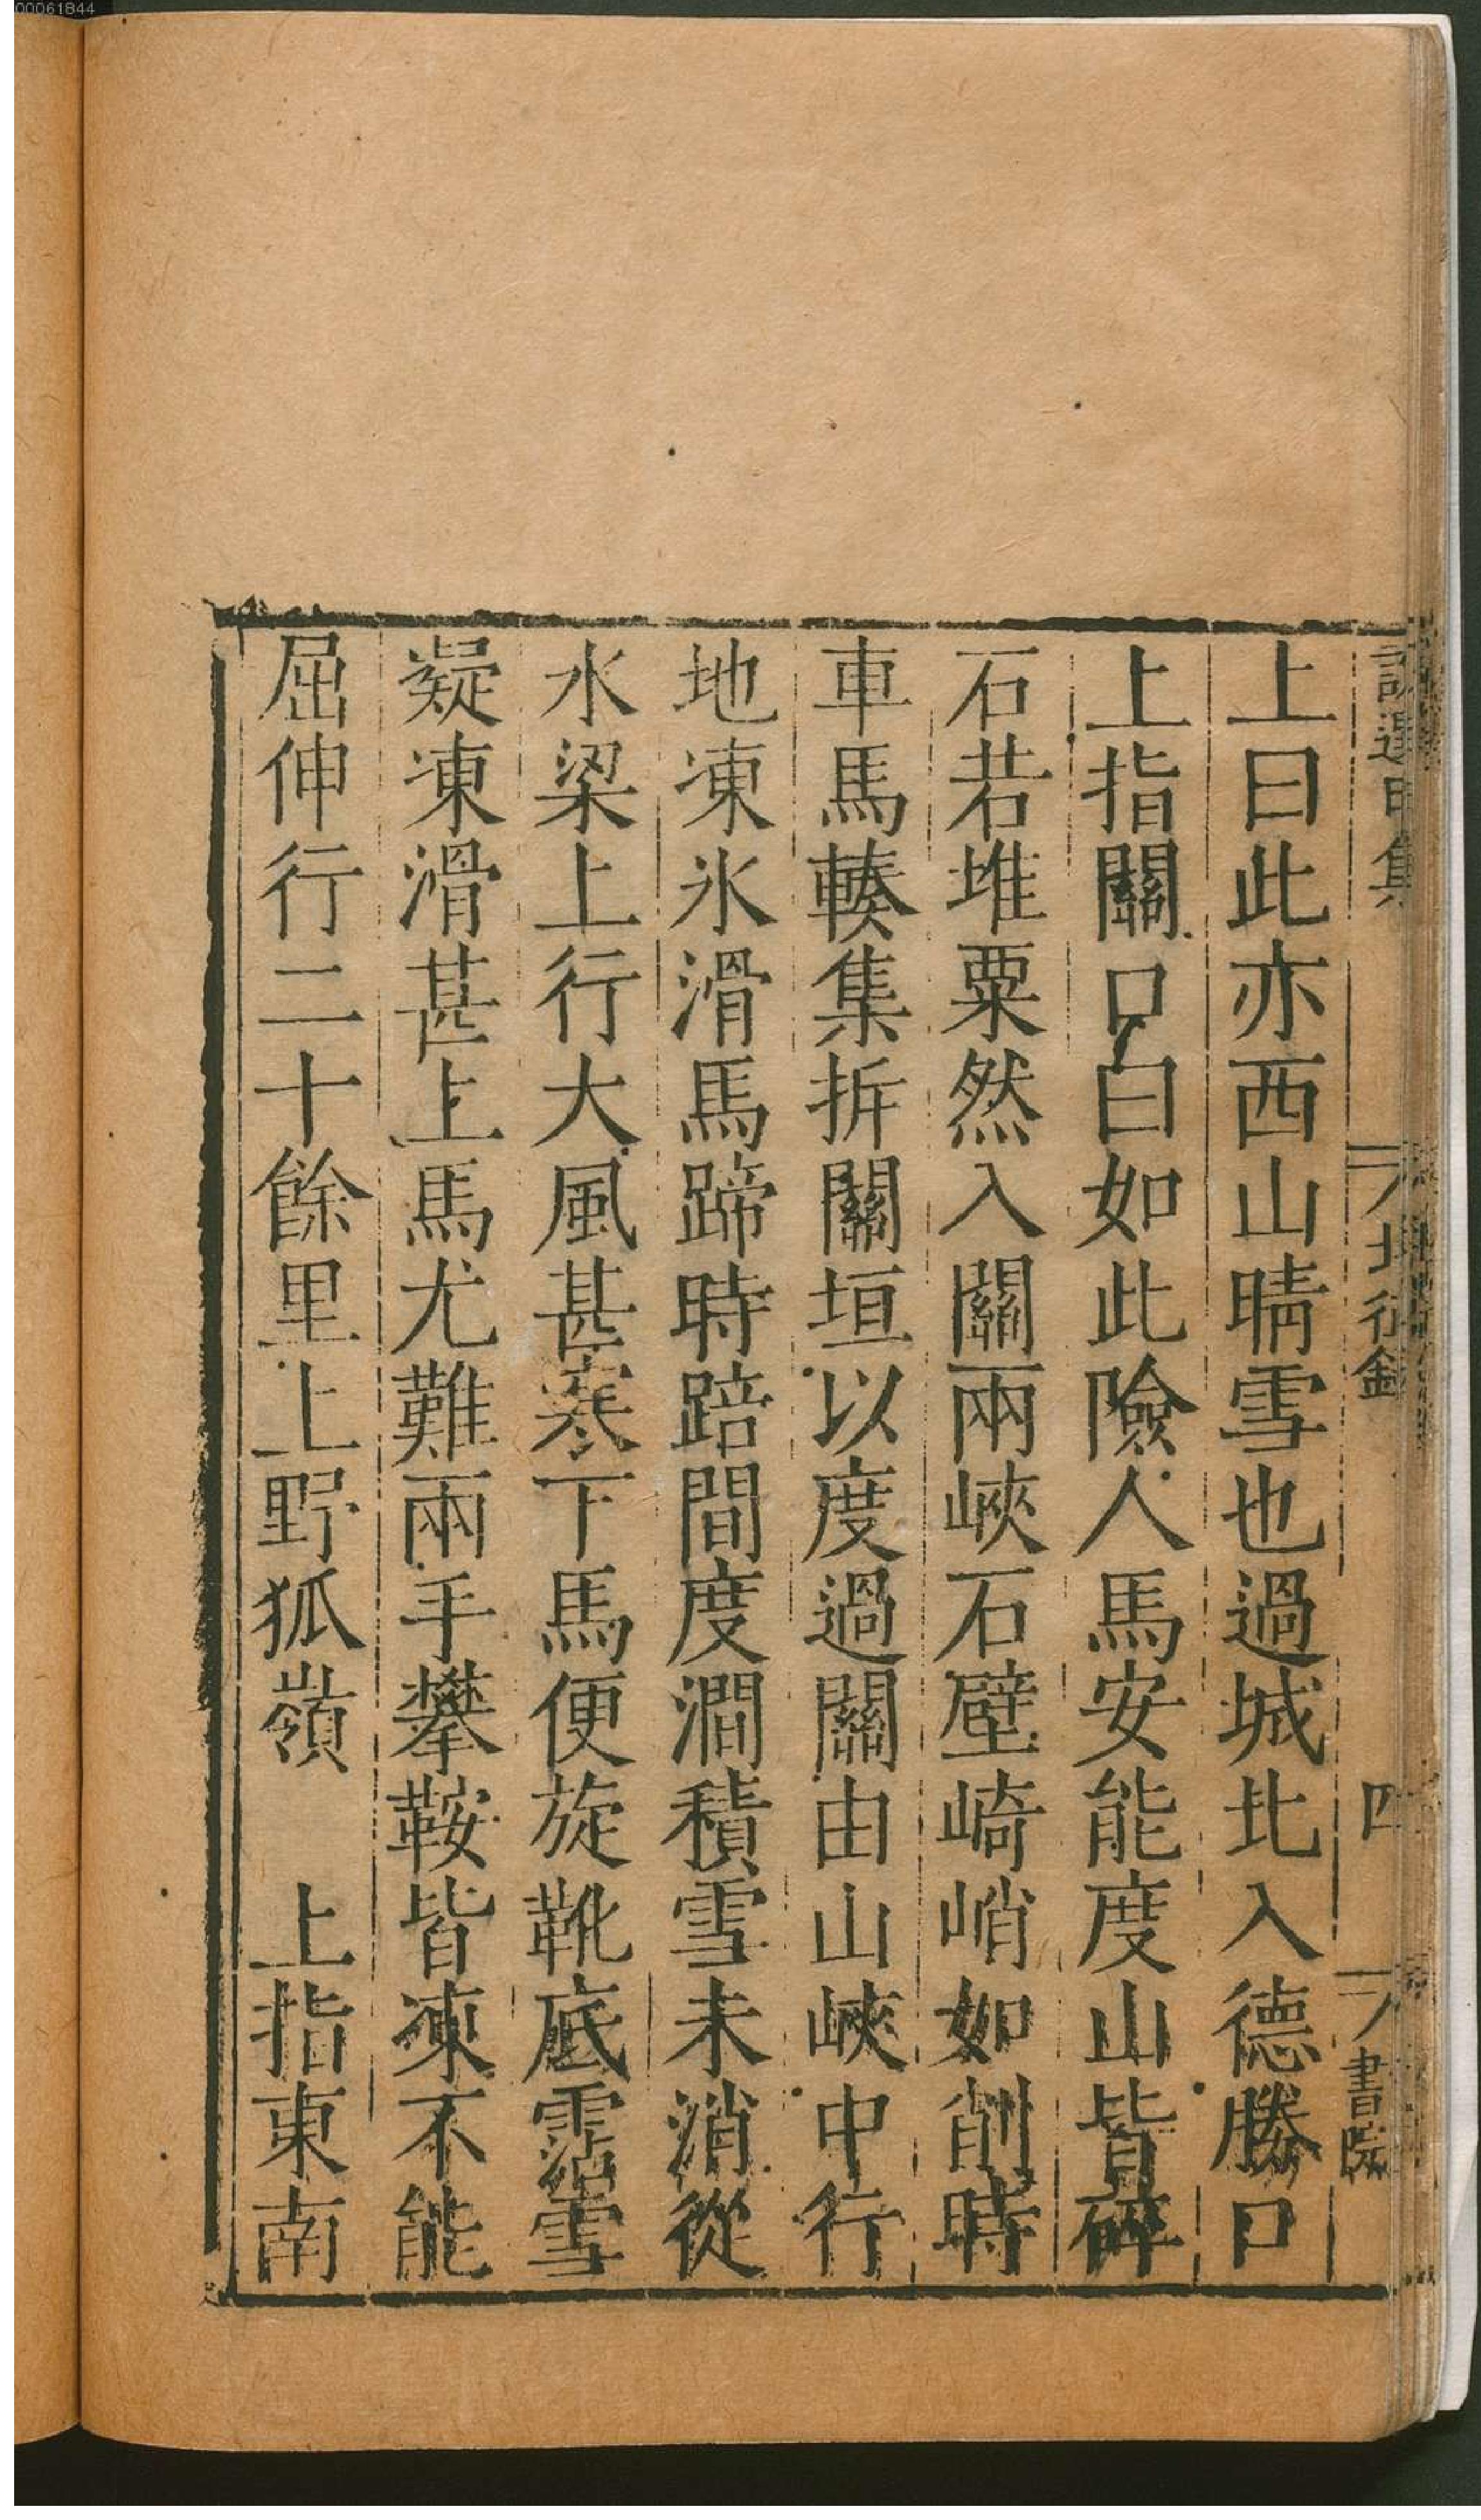 00061844
北征錄
四
書院
上曰此亦西山晴雪也過城北入德勝口
上指關口曰如此險人馬安能度山皆碎
石若堆粟然入關兩峽石壁崎峭如削時
車馬輳集拆關垣以度過關由山峽中行
地凍氷滑馬蹄時踣間度澗積雪未消從
水梁上行大風甚寒下馬便旋靴底霑雪
凝凍滑甚上馬尤難兩手攀鞍皆凍不能
屈伸行二十餘里上野狐嶺　上指東南